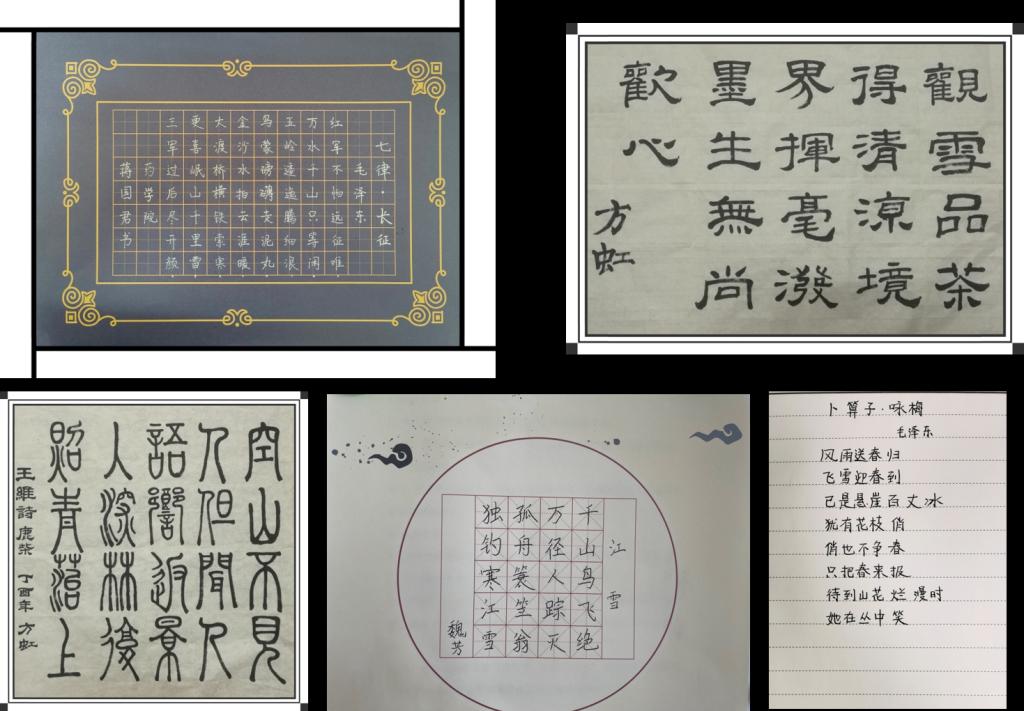 七律·长征
毛泽东
红军不怕远征难
万水千山只等闲
五岭逶迤腾细浪
乌蒙磅礴走泥丸
金沙水拍云崖暖
大渡桥横铁索寒
更喜岷山千里雪
三军过后尽开颜
药学院
蒋国君书
觀雪品茶
得清涼境
界揮毫潑
墨生無尚
歡心
方虹
空山不見
人但聞人
語響返景
入深林復
照青苔上
王維詩鹿柴 丁酉年 方虹
江雪
千山鸟飞绝
万径人踪灭
孤舟蓑笠翁
独钓寒江雪
魏芳
卜算子·咏梅
毛泽东
风雨送春归
飞雪迎春到
已是悬崖百丈冰
犹有花枝俏
俏也不争春
只把春来报
待到山花烂漫时
她在丛中笑